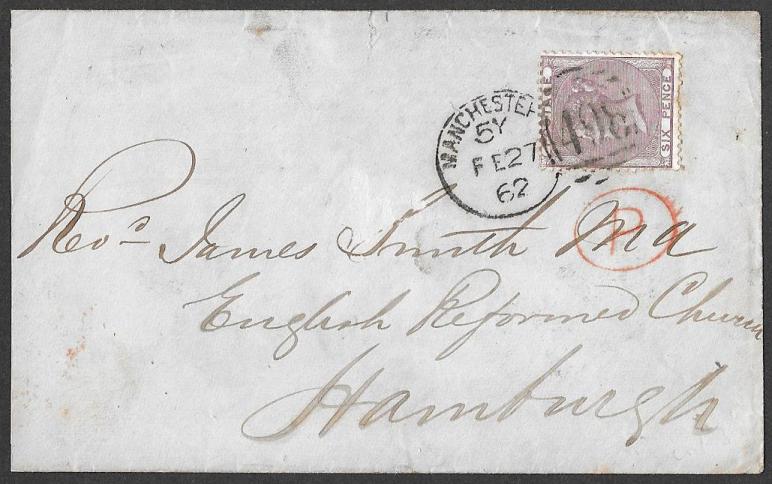 MANCHESTER
5Y
FE27
62
498
AGE
SIX PENCE
P
Rev.d James Smith MA
English Reformed Church
Hamburgh